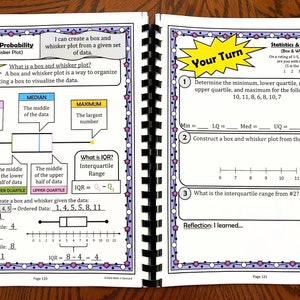 Probability
sker Plot)
I can create a box and
whisker plot from a given set
of data.
What is a box and whisker plot?
A box and whisker plot is a way to organize
a box to visualize the data.
MEDIAN
The middle
of the data
MAXIMUM
The largest
number
The middle
of the lower
half of data
LOWER QUARTILE
The middle
of the upper
half of data
UPPER QUARTILE
What is IQR?
Interquartile
Range
IQR = Q₃ - Q₁
create a box and whisker given the data:
4, 5 = Ordered Data: 1, 4, 5, 5, 8, 11
8
IQR = 8 - 4 = 4
Page 120
Your Turn
Statistics &
(Box & W
On a rating of 1-5,
1 2
1
Determine the minimum, lower quartile,
upper quartile, and maximum for the follo
10, 11, 8, 6, 8, 10, 7
Min = LQ = Med = UQ =
2
Construct a box and whisker plot from the
3
What is the interquartile range from #2?
Reflection: I learned...
Page 121